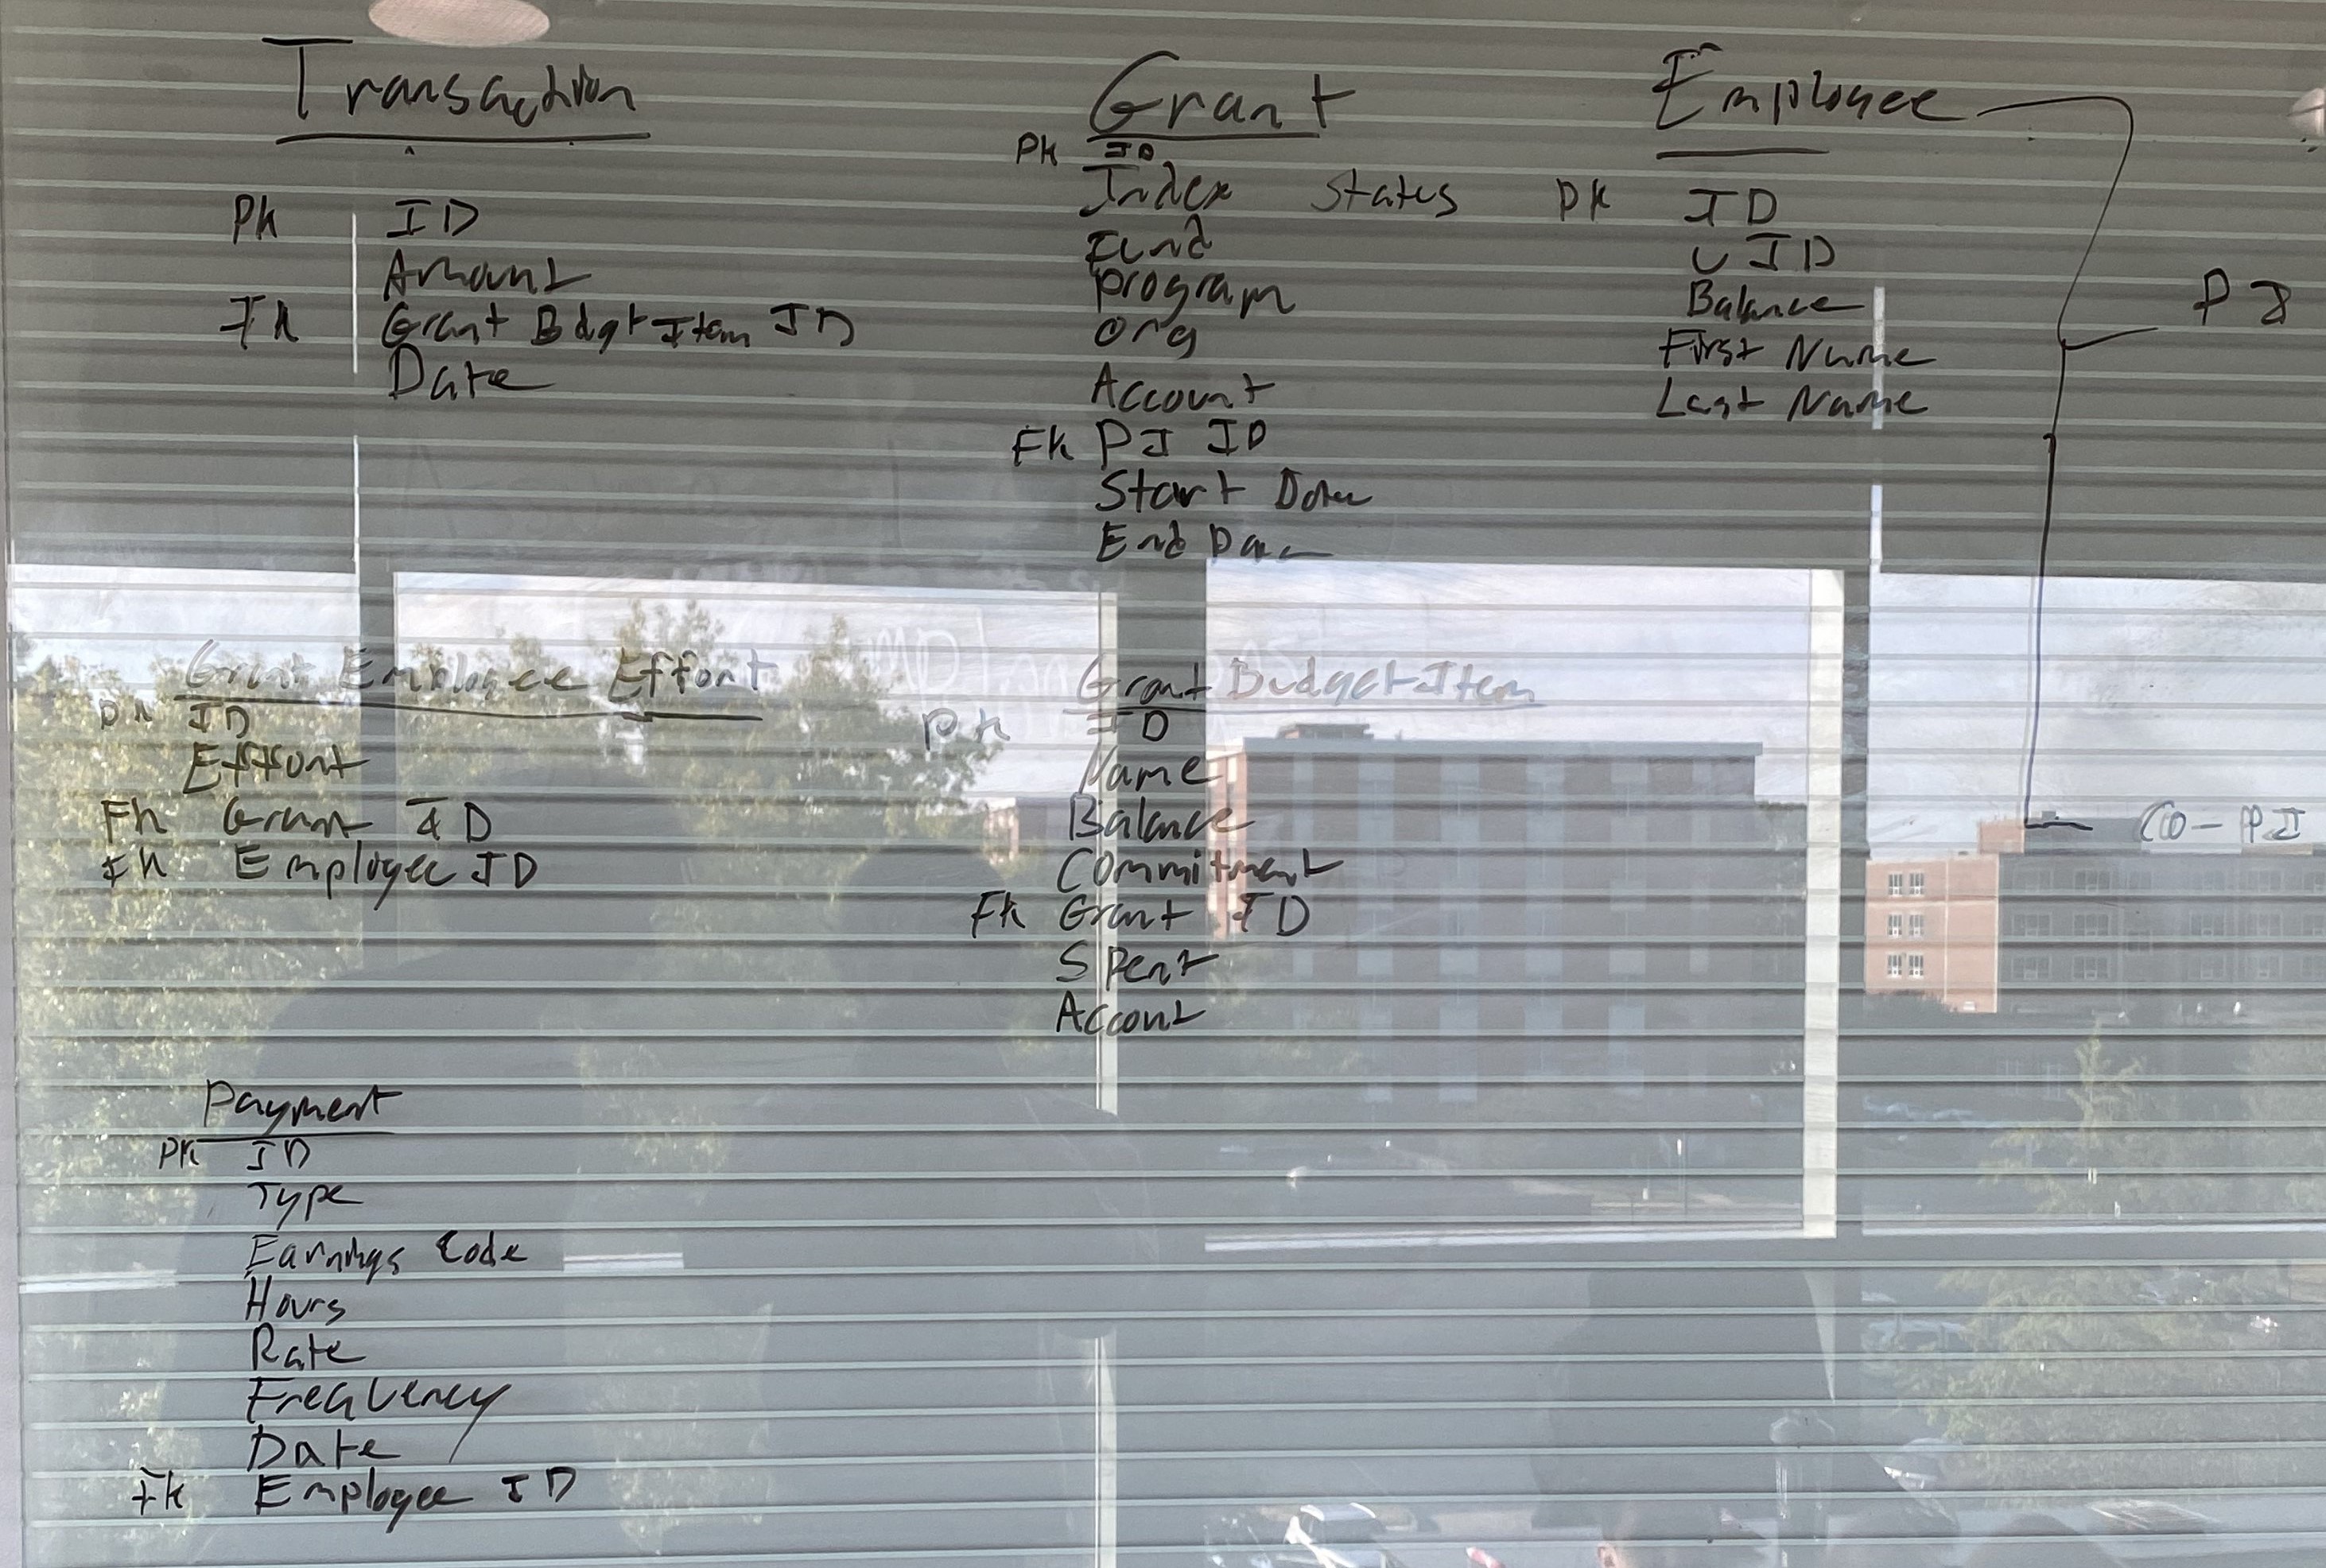 Transaction
PK ID
Amount
FK Grant Bdgt Item ID
Date
Grant
PK ID
Index Status
Fund
Program
Org
Account
FK PI ID
Start Date
End Date
Employee
PK ID
UID
Balance
First Name
Last Name
PI
CO-PI
Grant Employee Effort
PK ID
Effort
FK Grant ID
FK Employee ID
Grant Budget Item
PK ID
Name
Balance
Commitment
FK Grant ID
Spent
Account
Payment
PK ID
Type
Earnings Code
Hours
Rate
Frequency
Date
FK Employee ID